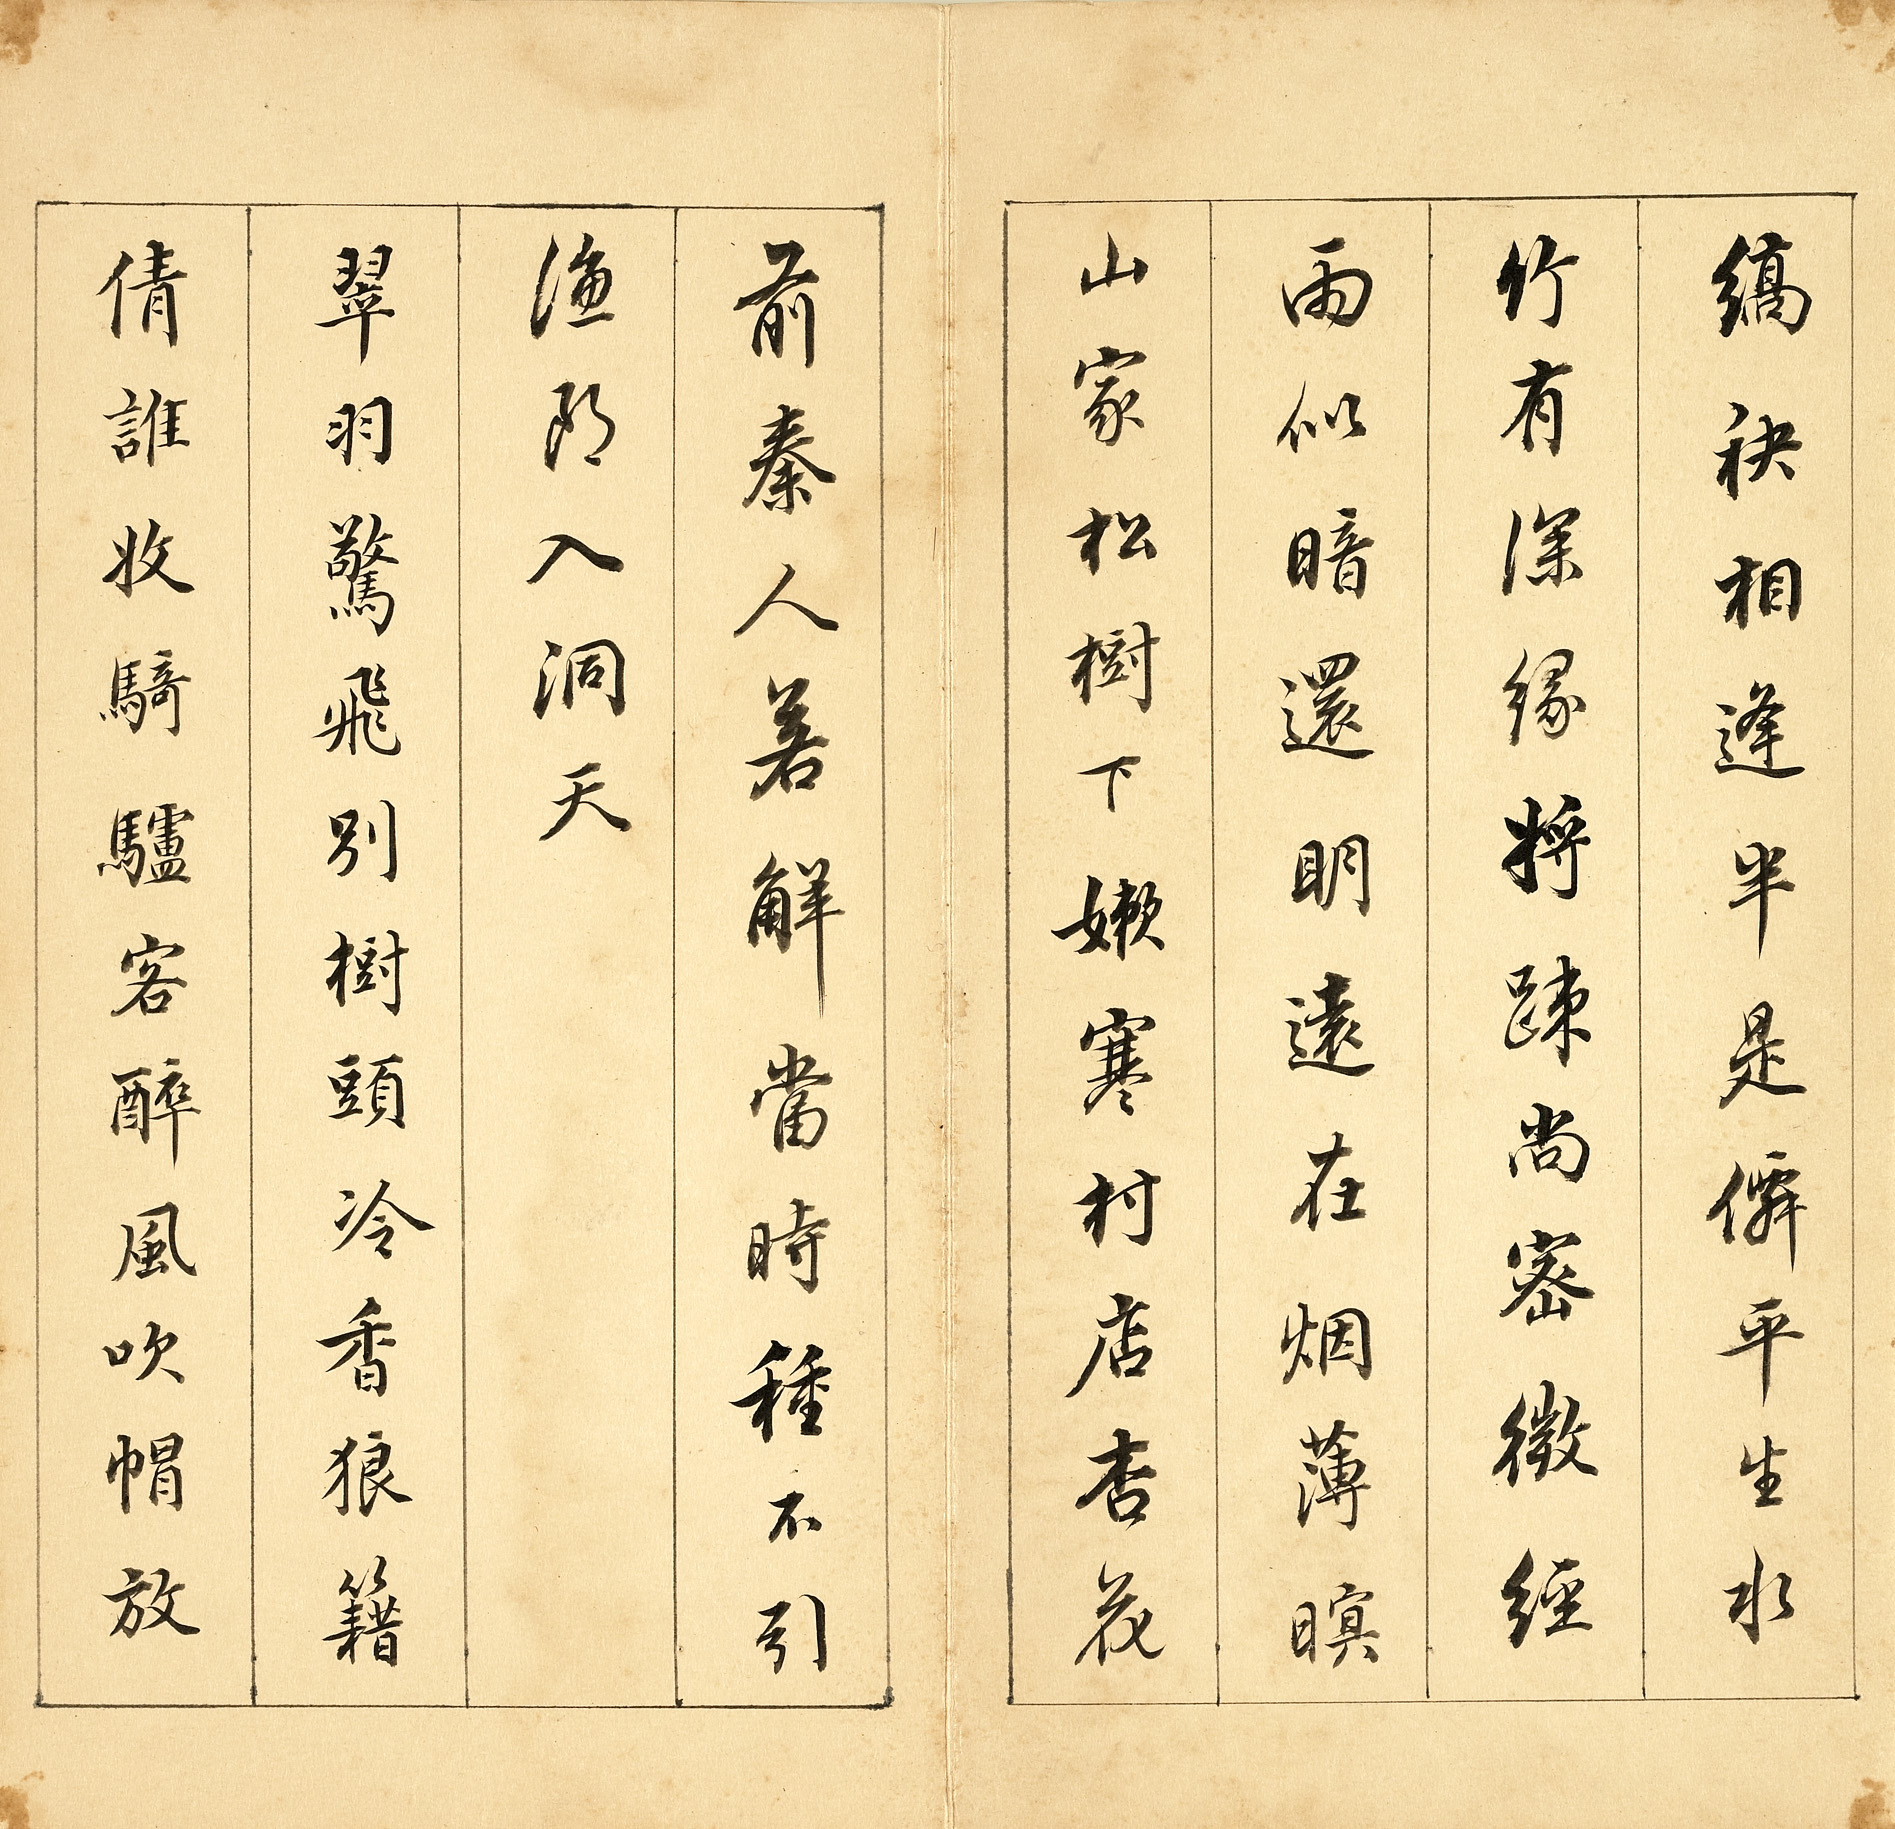 縞袂相逢半是僊平生水
竹有深緣將疎尚密微經
雨似暗還明遠在烟薄暝
山家松樹下嫩寒村店杏花
前秦人若解當時種不引
漁郎入洞天
翠羽驚飛別樹頭冷香狼籍
倩誰收騎驢客醉風吹帽放